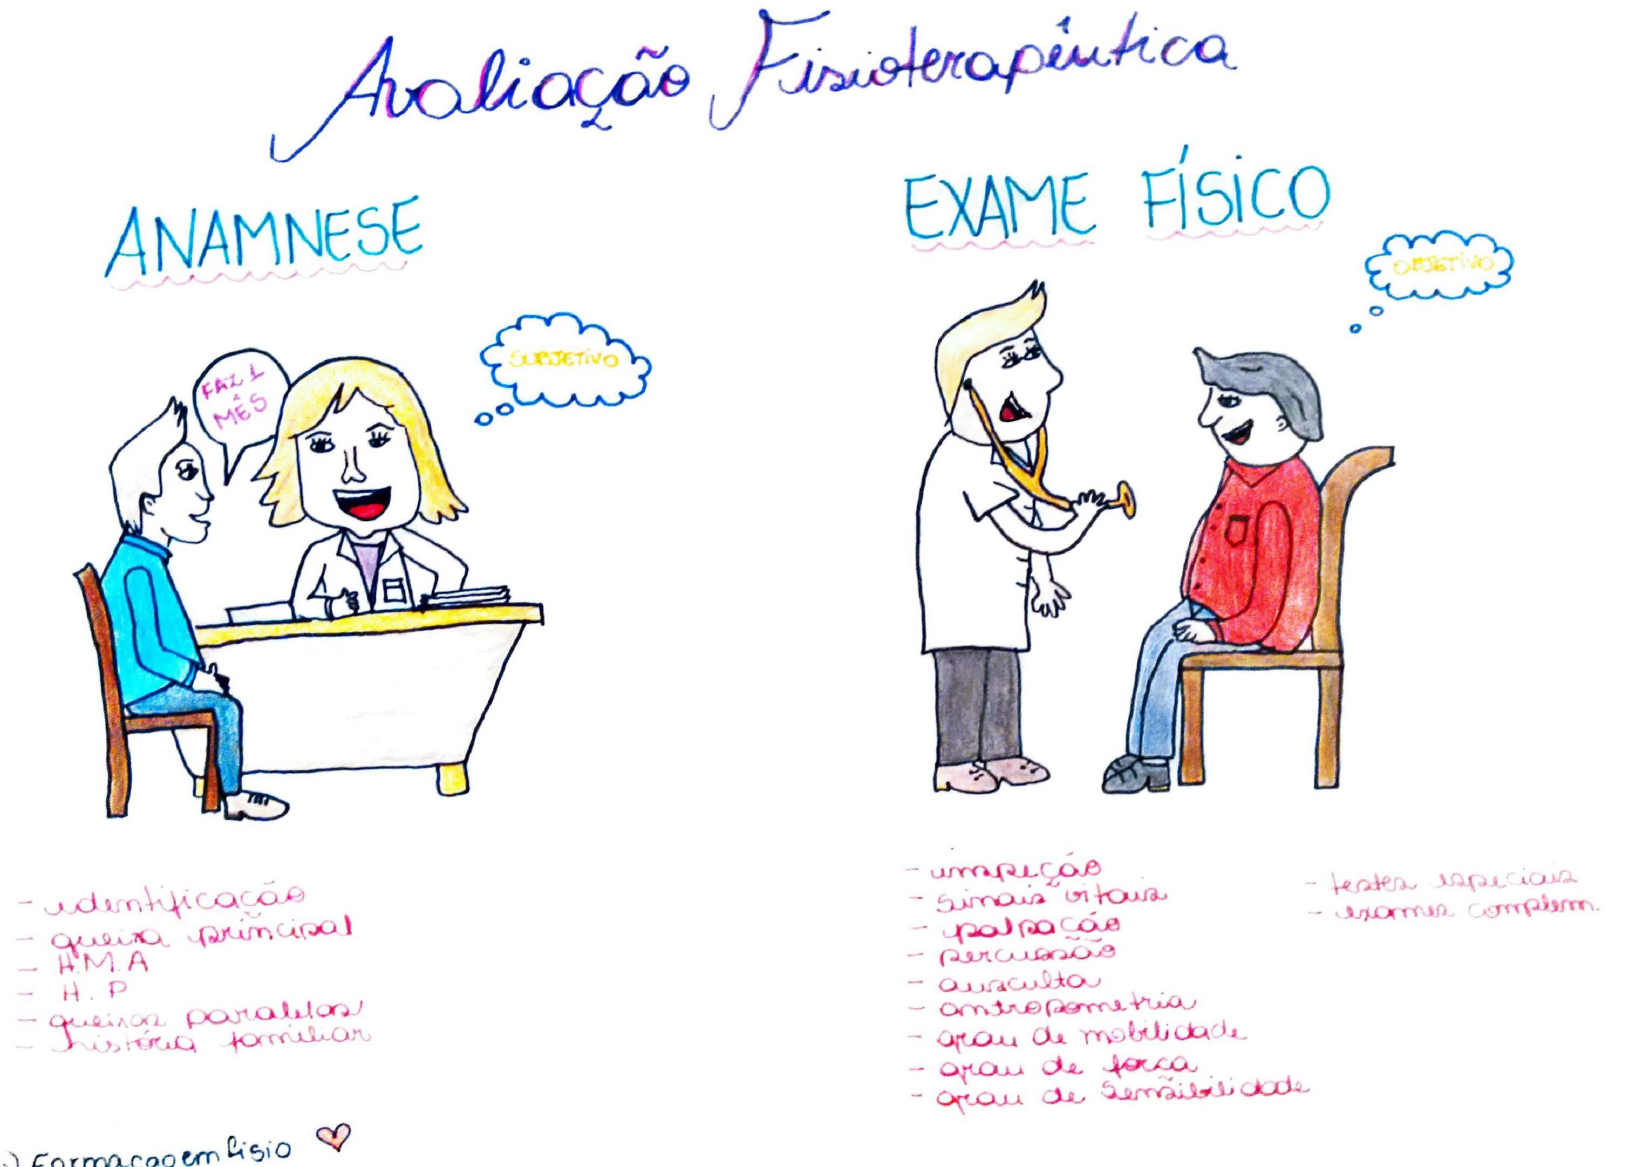 Avaliação Fisioterapêutica
ANAMNESE
SUBJETIVO
FAZ 1
MÊS
- identificação
- queixa principal
- H.M.A
- H.P
- queixas paralelas
- história familiar
EXAME FÍSICO
OBJETIVO
- inspeção
- sinais vitais
- palpação
- percussão
- ausculta
- antropometria
- grau de mobilidade
- grau de força
- grau de sensibilidade
- testes especiais
- exames complem.
Formacaoemfisio